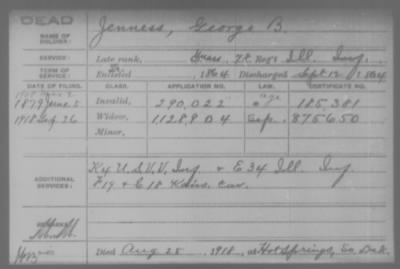 DEAD
NAME OF SOLDIER: Jenness, George B.
SERVICE: Late rank, Ill. Inf.
TERM OF SERVICE: Enlisted , 1864 Discharged Sept 12, 1864
DATE OF FILING. CLASS. APPLICATION NO. LAW. CERTIFICATE NO.
1879 June 5 Invalid, 290,022 185,381
1918 Sep. 26 Widow, 1,128,904 875650
Minor,
ADDITIONAL SERVICES: K 4 U.S.V.V. Inf & E 34 Ill. Inf
F 19 & C 18 Kans. Cav.
Died Aug 25, 1918, at Hot Springs, So. Dak.